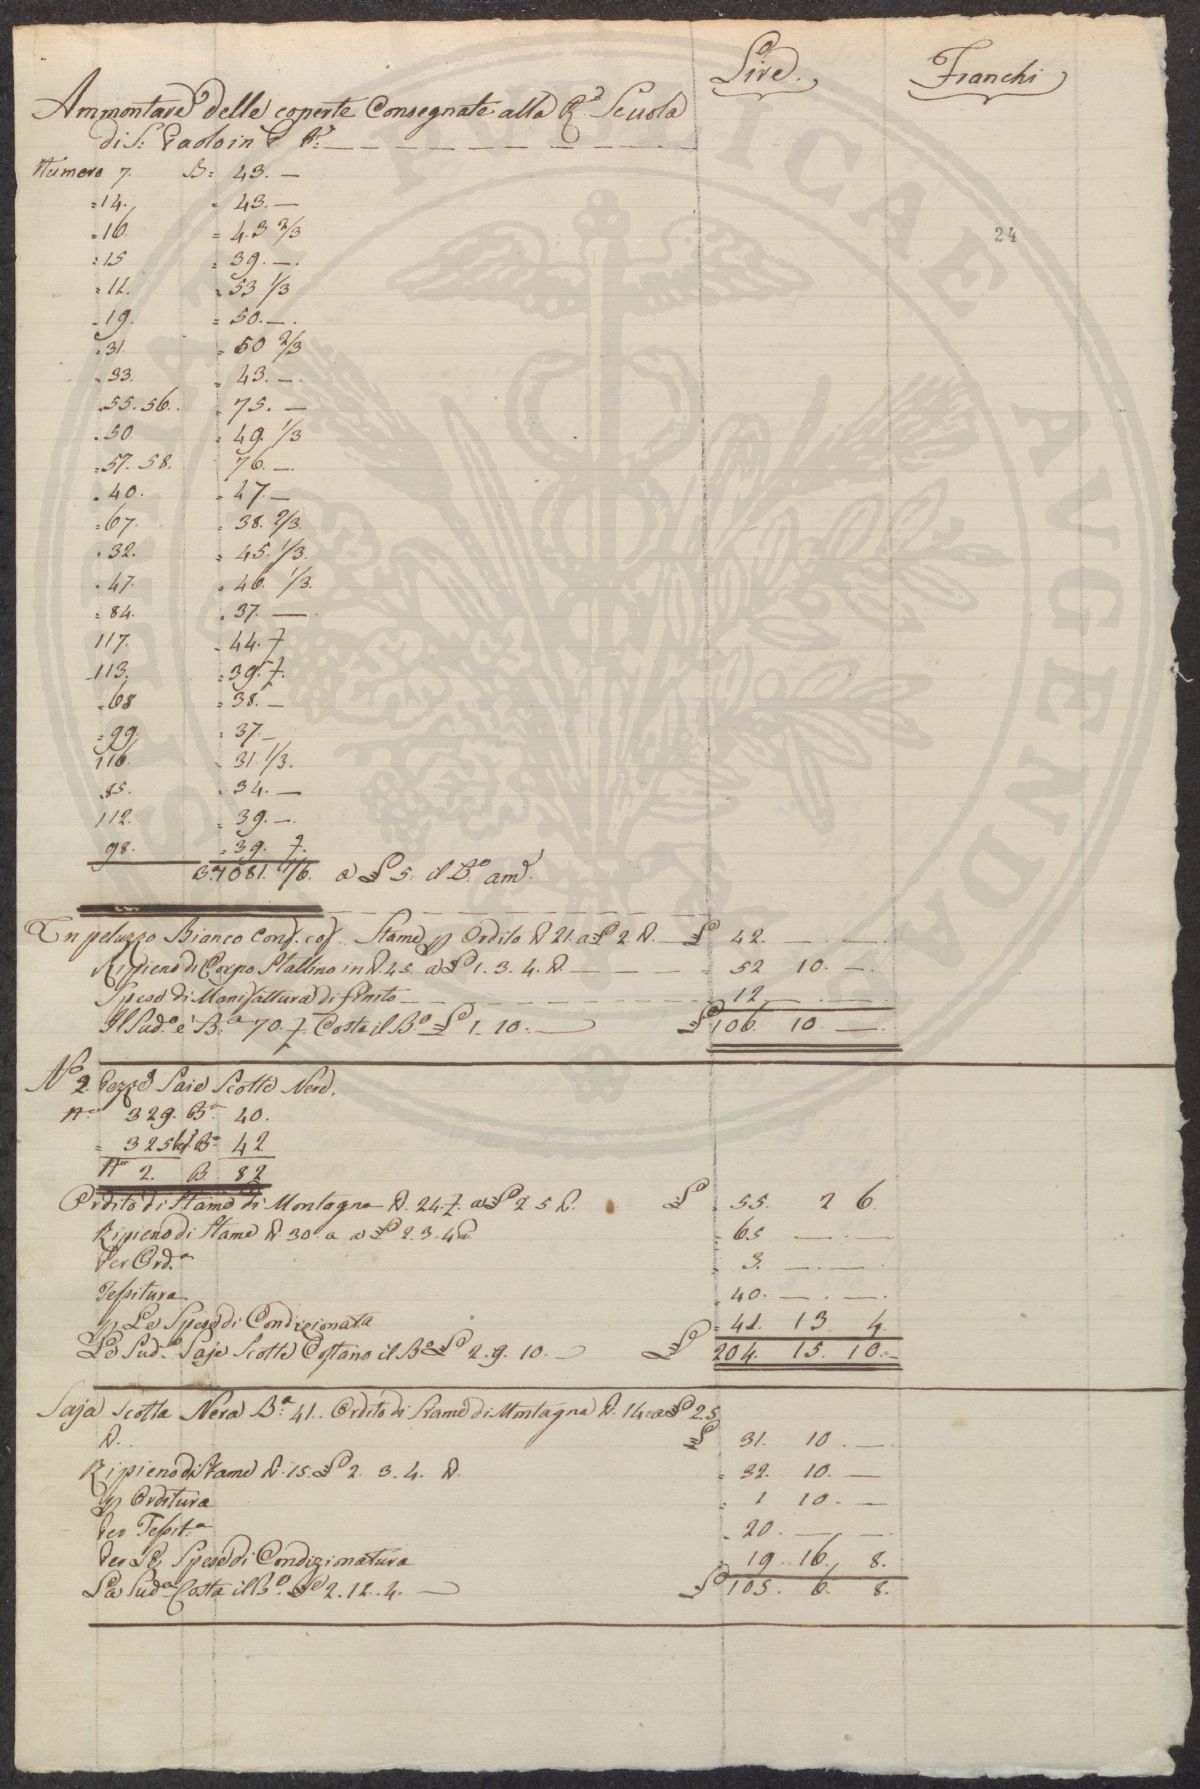 Lire. Franchi
Ammontare delle coperte Consegnate alla R.ª Scuola
di S: Paolo in
Numero 7. B: 43. —
=14. = 43. —
=16. = 43 2/3
=15 = 39. —.
=11. = 53 1/3
=19. = 50. —.
=31. = 50 2/3
=33. = 43. —.
=55. 56. = 75. —
=50 = 49. 1/3
=57. 58. 76. —.
=40. = 47. —
=67. = 38. 2/3.
=32. = 45. 1/3.
=47. = 46. 1/3.
=84. = 37. —.
117. = 44. ƒ
113. = 39. ƒ.
=68 = 38. —
=99. = 37. —
116. = 31. 1/3.
85. = 34. —
112. = 39. —.
98. = 39. ƒ.
B.ª 1081. 1/6. a £ 5. il B.º am.
Un peluzzo Bianco Stame p Ordito lb 21. a £ 2 lb. — £ 42. — —.
Ripieno di Corpo Stallino in lb. 45. a £ 1. 3. 4. lb. — — — = 52 10. —.
Spese di Manifattura di finito — — — = 12 — —.
Il Sud.º è B.ª 70. ƒ. Costa il B.º £ 1. 10. — £ 106. 10 —
Nº 2. Pezze Saie Scotte Nere.
Nº 329. B.ª 40.
= 325 bis B.ª 42
Nº 2. B. 82
Ordito di Stame di Montagna lb. 24. ƒ. a £ 2 5 lb. £ 55. 2 6.
Ripieno di Stame lb. 30. a a £ 2. 3. 4 lb = 65 — —.
Per Ord.ª = 3. —. —.
Tessitura = 40. —. —.
p Le Spese di Condizionata = 41. 13 4.
Le Sud.e Saje Scotte Costano il B.º £ 2. 9. 10. — £ 204. 15. 10. —
Saja Scotta Nera B.ª 41. Ordito di Stame di Montagna lb. 14: a £ 2. 5
lb. £ 31. 10. —.
Ripieno di Stame lb. 15. £ 2. 3. 4. lb. = 32. 10. —
p Orditura = 1 10. —
Per Tessit.ª = 20. —, —.
Per Le Spese di Condizionatura = 19 16. 8.
La Sud.ª Costa il B.º £ 2. 12. 4. — £ 105. 6. 8.
24
PUBLICAE
AUGENDAE